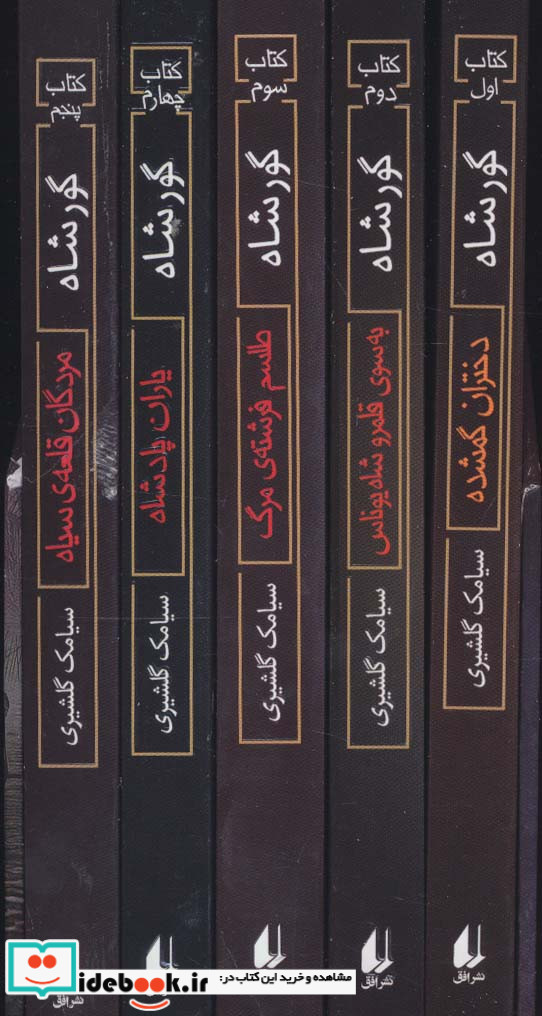 کتاب
اول
گورشاه
دختران گمشده
سیامک گلشیری
نشر افق
کتاب
دوم
گورشاه
به سوی قلمرو شاه یوناس
سیامک گلشیری
نشر افق
کتاب
سوم
گورشاه
طلسم فرشته‌ی مرگ
سیامک گلشیری
کتاب
چهارم
گورشاه
یاران پادشاه
سیامک گلشیری
کتاب
پنجم
گورشاه
مردگان قلعه‌ی سیاه
سیامک گلشیری
نشر افق
مشاهده و خرید این کتاب در:
idebook.ir